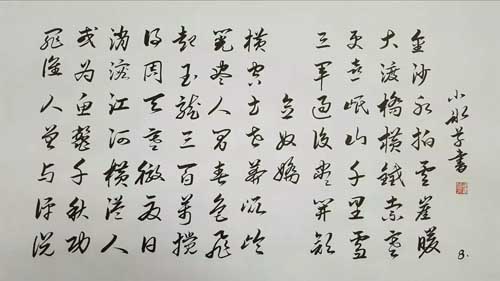 小草書
金沙水拍雲崖暖
大渡橋横鐵索寒
更喜岷山千里雪
三軍過後盡開顔
念奴嬌
横空出世莽崐崙
尽人間春色飛
起玉龍三百萬攪
得周天寒徹夏日
消溶江河横溢人
或为魚鱉千秋功
罪誰人曾与評说
8.